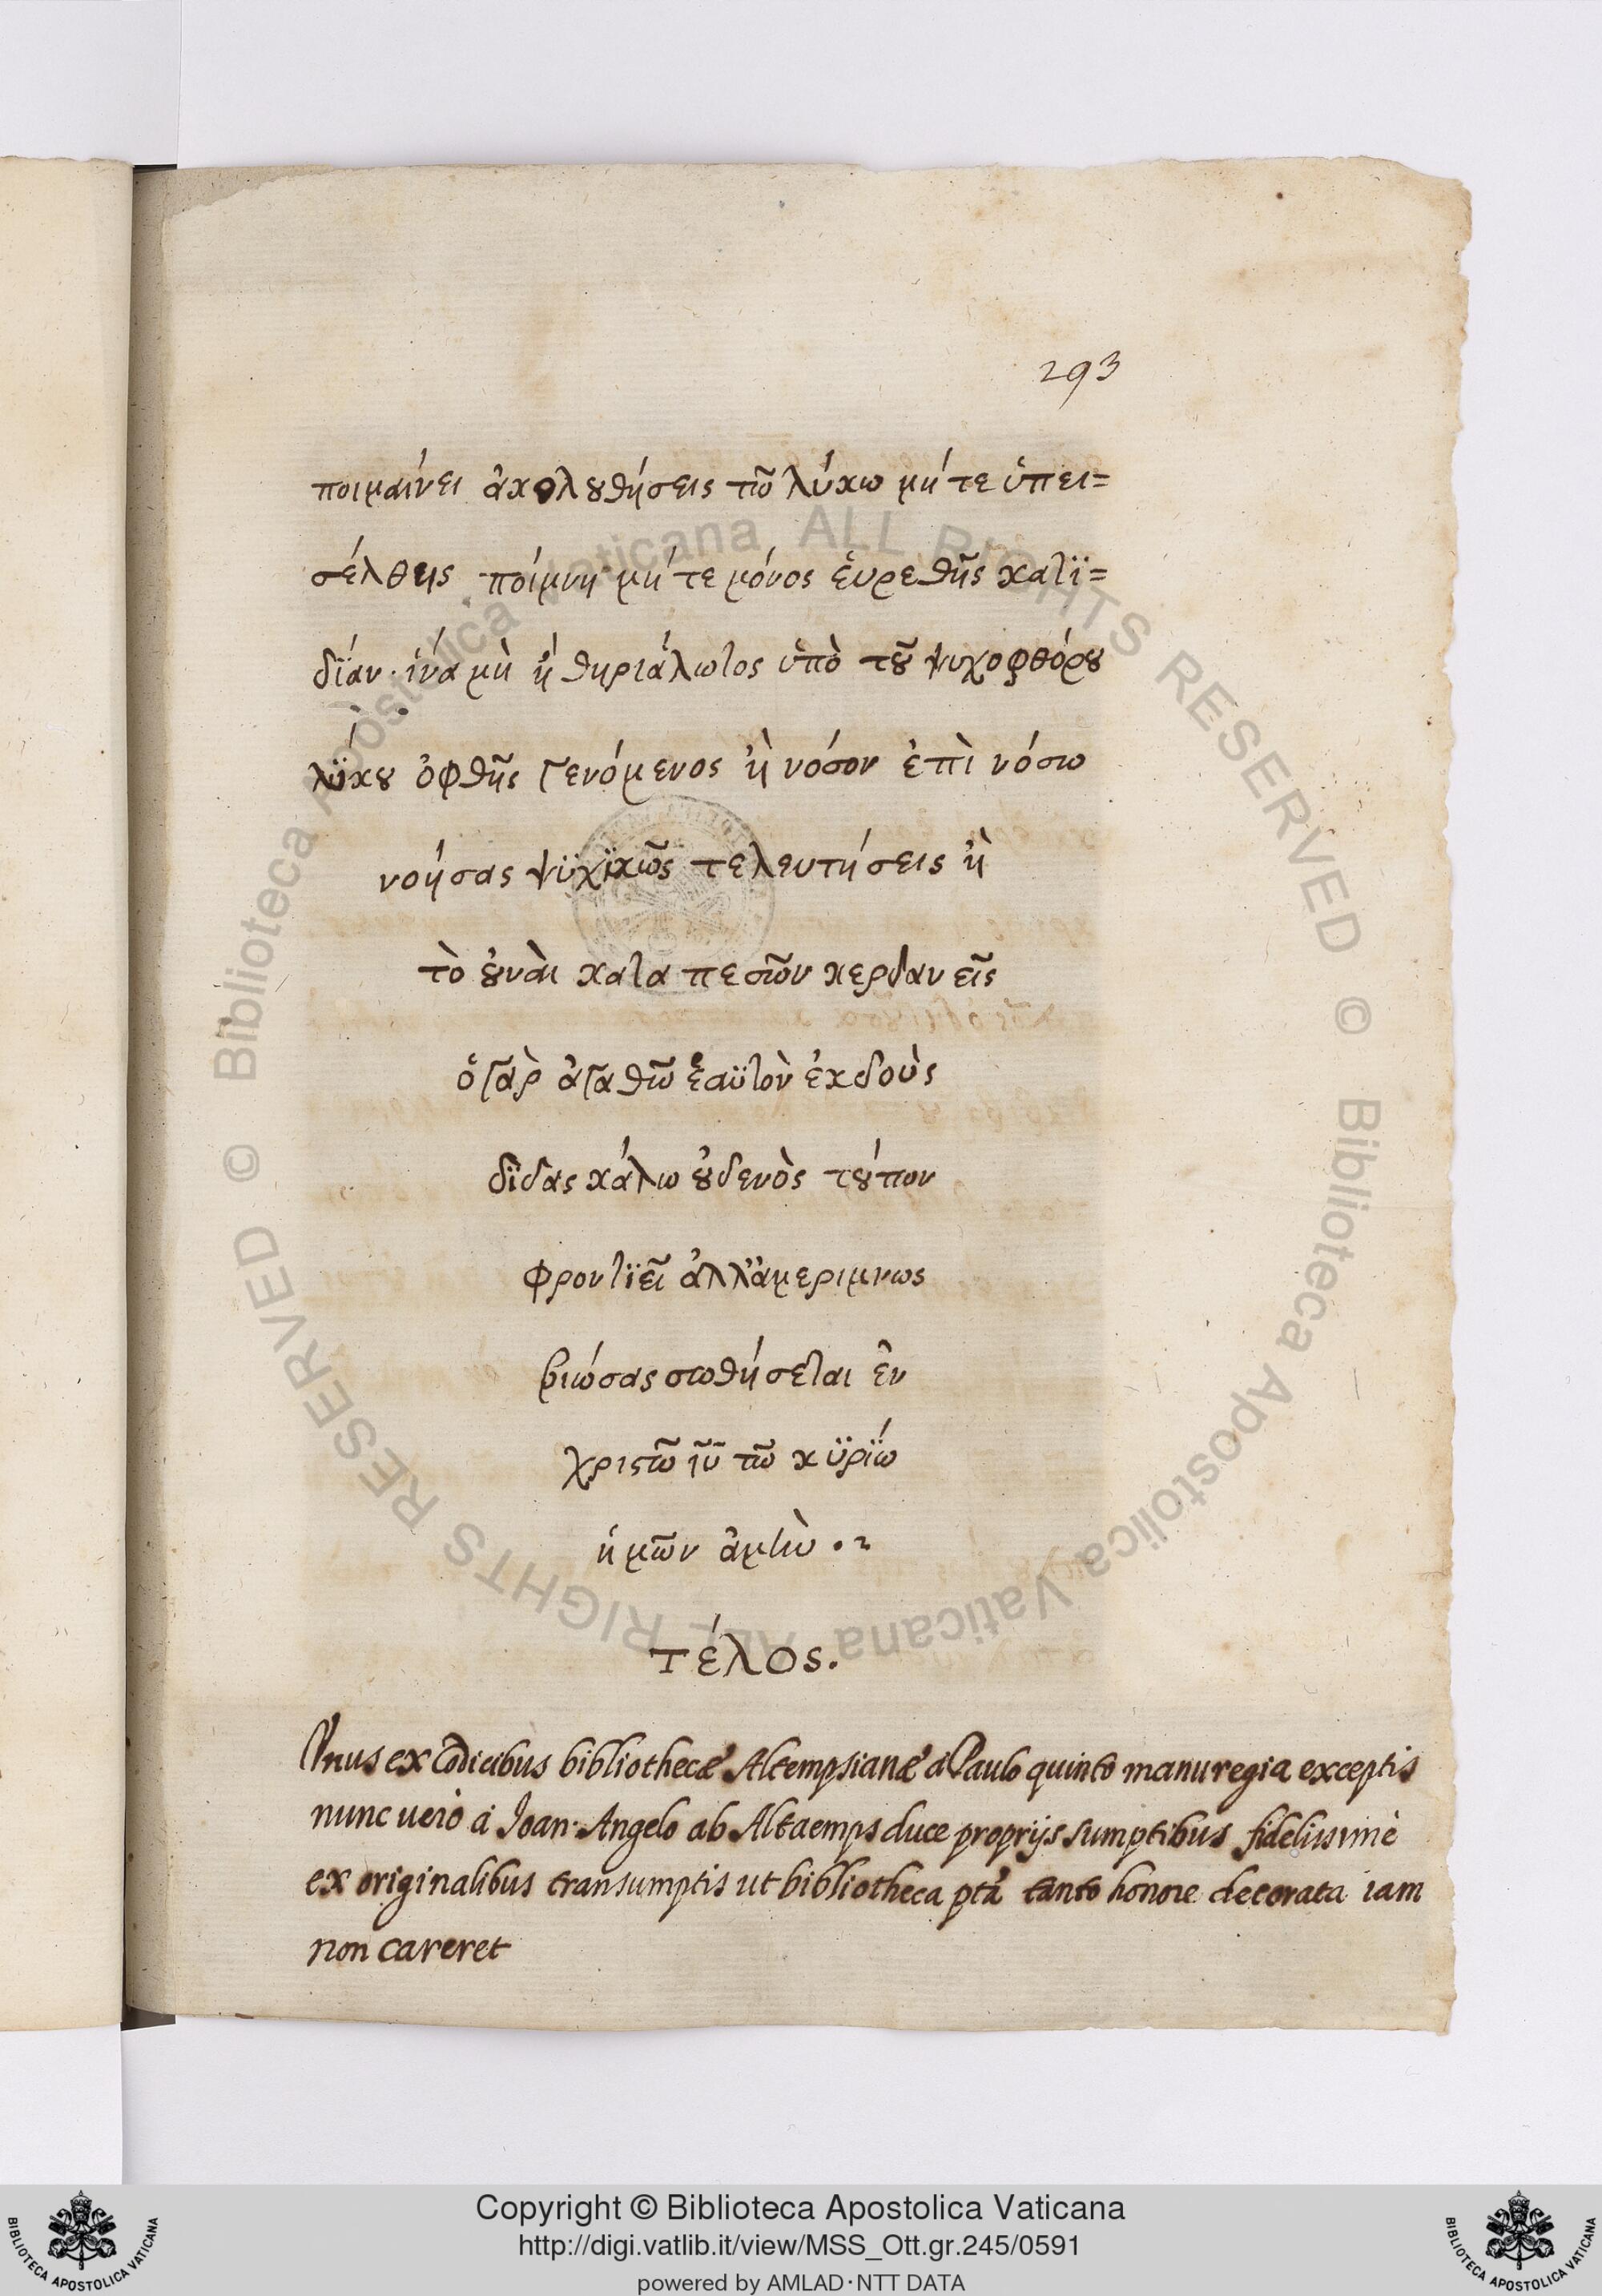 293
ποιμαίνει ἀκολȣθήσεις τῶ λύκω μή τε ὑπει=
σέλθης ποίμνη· μή τε μόνος ἑυρεθῆς κατϊ=
δΐαν· ἱνα μὴ ἢ θηριάλωτος ὑπὸ τȣ͂ ψυχοφθόρȣ
λϋκȣ ὀφθῆς γενόμενος ἢ νόσον ἐπὶ νόσω
νοήσας ψϋχϊκῶς τελευτήσεις ἢ
τὸ ȣ̓ναὶ κατα πεσῶν κερδαν εῖς
ὁ γὰρ ἀγαθῶ ἑαϋτὸν ἐκδοὺς
δϊδας κάλω ȣ̓δενὸς τȣ́πον
φροντϊεῖ ἀλλἀμεριμνως
βιώσας σωθήσεται ἐν
χριστῶ ιῦ τῶ κϋρΐω
ἡμῶν ἀμὴν .~
τέλος.
Vnus ex Codicibus bibliothecæ Altempsianæ à Paulo quinto manu regia exceptis
nunc uero à Joan. Angelo ab Altaemps duce proprijs sumptibus fidelissimè
ex originalibus transumptis ut bibliotheca ptã tanto honore decorata iam
non careret
© Biblioteca Apostolica Vaticana ALL RIGHTS RESERVED © Biblioteca Apostolica Vaticana ALL RIGHTS RESERVED
Copyright © Biblioteca Apostolica Vaticana
http://digi.vatlib.it/view/MSS_Ott.gr.245/0591
powered by AMLAD·NTT DATA
BIBLIOTECA APOSTOLICA VATICANA
BIBLIOTECA APOSTOLICA VATICANA